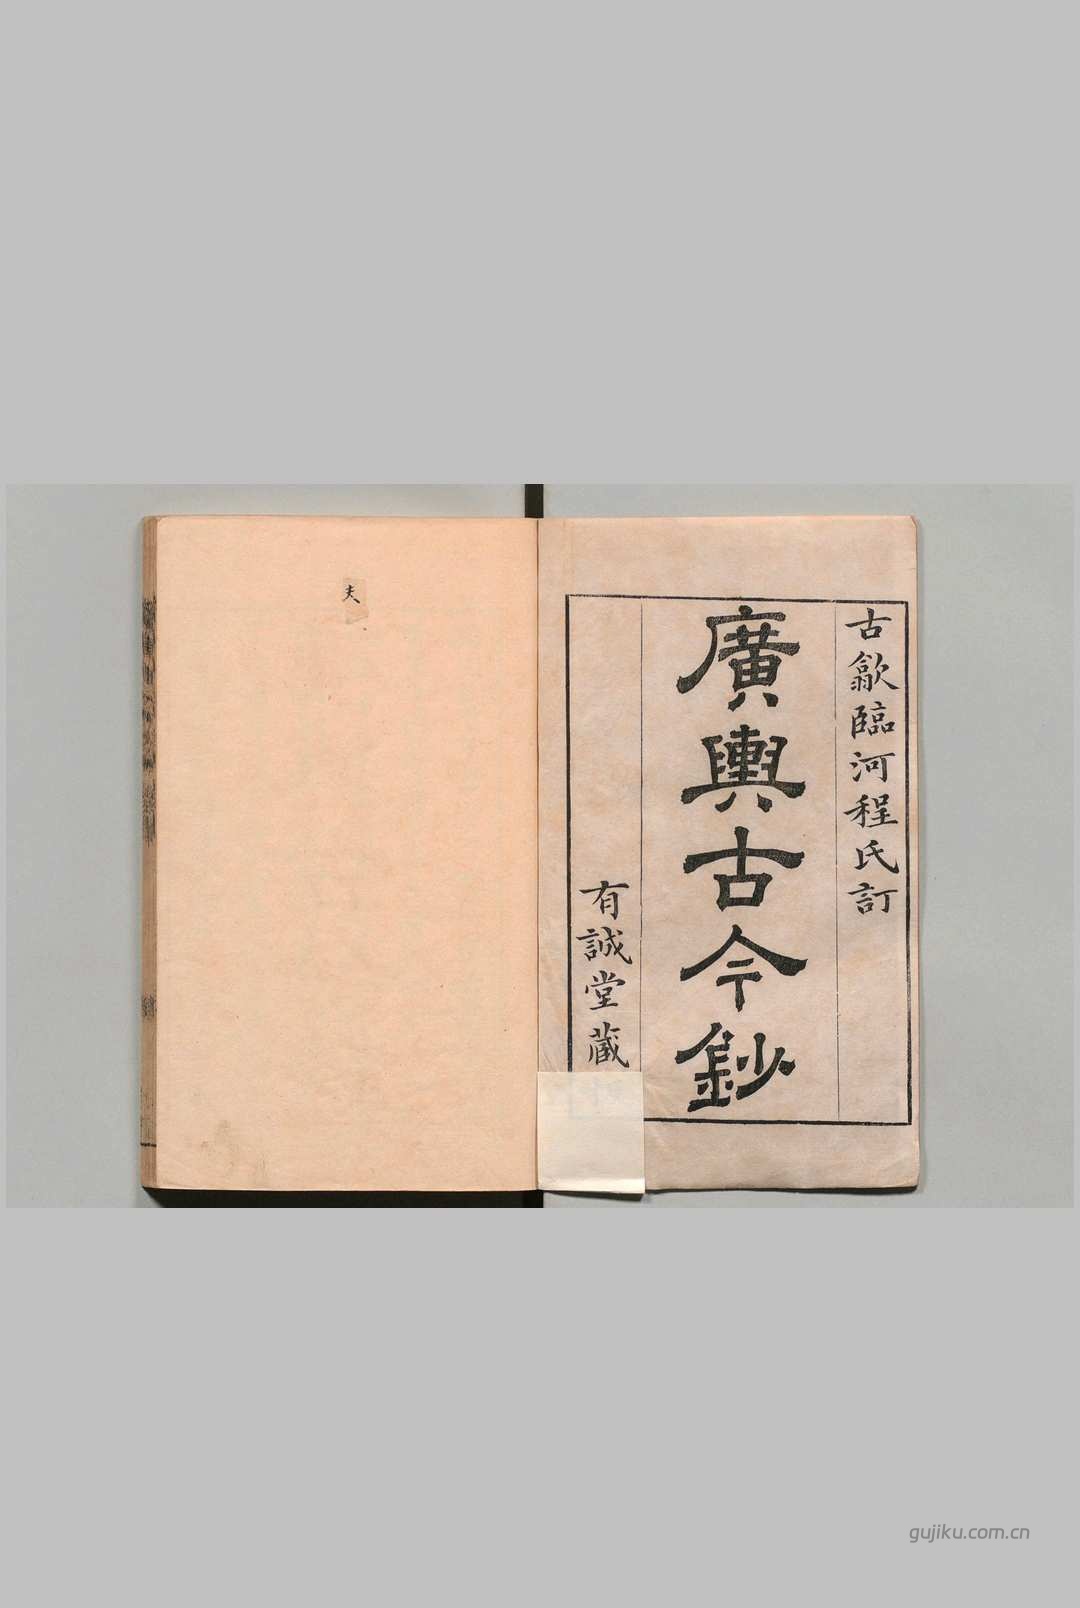 古歙臨河程氏訂
廣輿古今鈔
有誠堂藏
夫
gujiku.com.cn